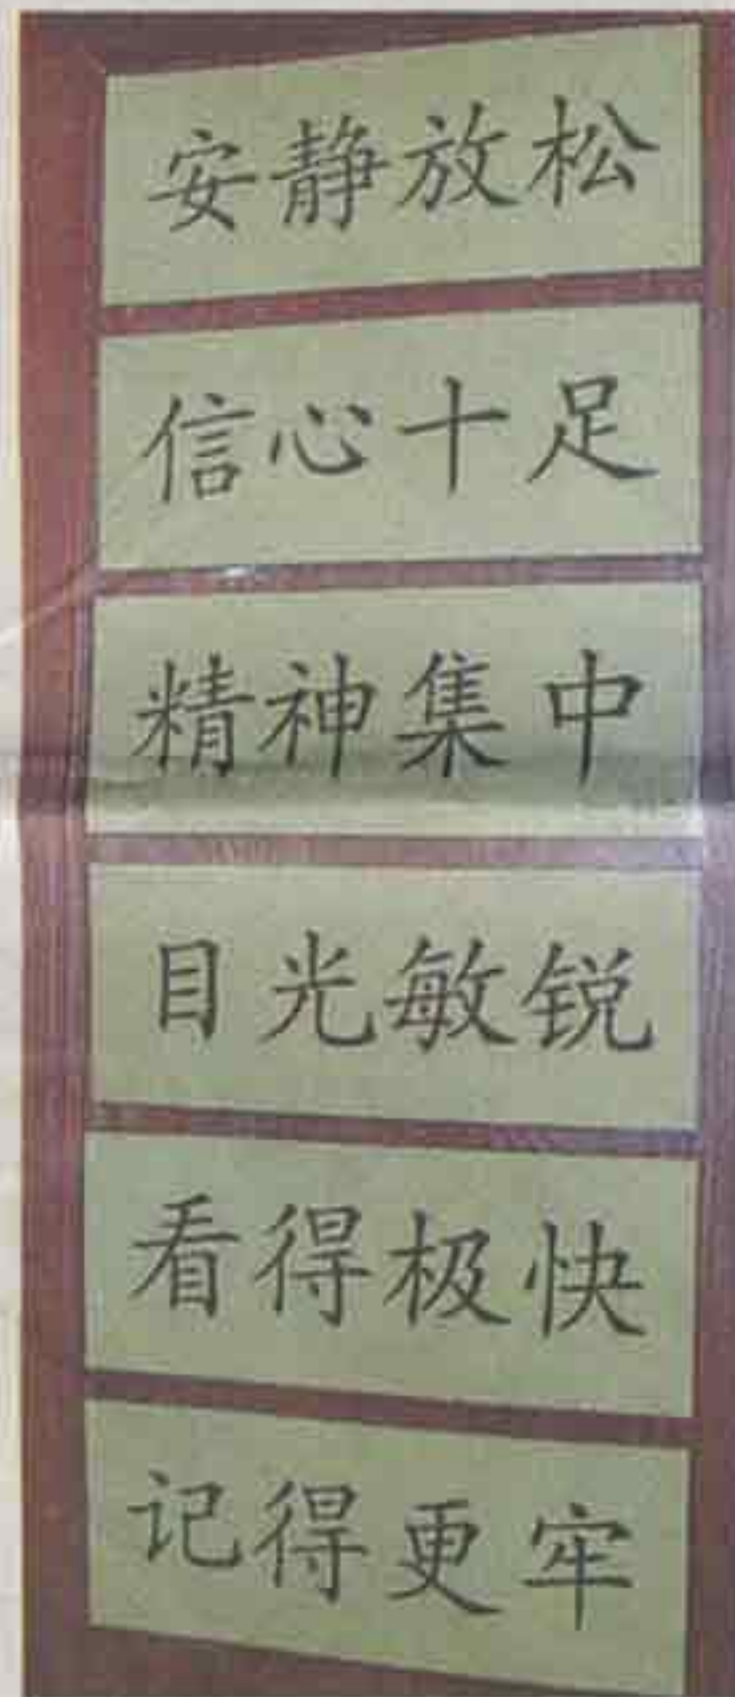 安静放松
信心十足
精神集中
目光敏锐
看得极快
记得更牢